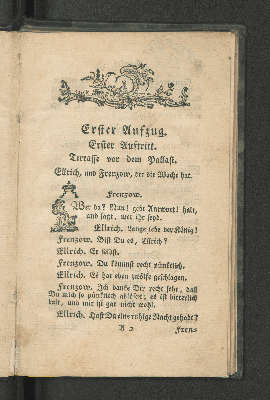 Erster Aufzug.
Erster Auftritt.
Terrasse vor dem Pallast.
Ellrich, und Frenzow, der die Wache hat.
Frenzow.
Wer da? Nun! gebt Antwort! halt,
und sagt, wer ihr seyd.
Ellrich. Lange lebe der König!
Frenzow. Bist Du es, Ellrich?
Ellrich. Er selbst.
Frenzow. Du kömmst recht pünktlich.
Ellrich. Es hat eben zwölfe geschlagen.
Frenzow. Ich danke Dir recht sehr, daß
Du mich so pünktlich ablösest; es ist bitterlich
kalt, und mir ist gar nicht wohl.
Ellrich. Hast Du eine ruhige Nacht gehabt?
A 2
Fren-